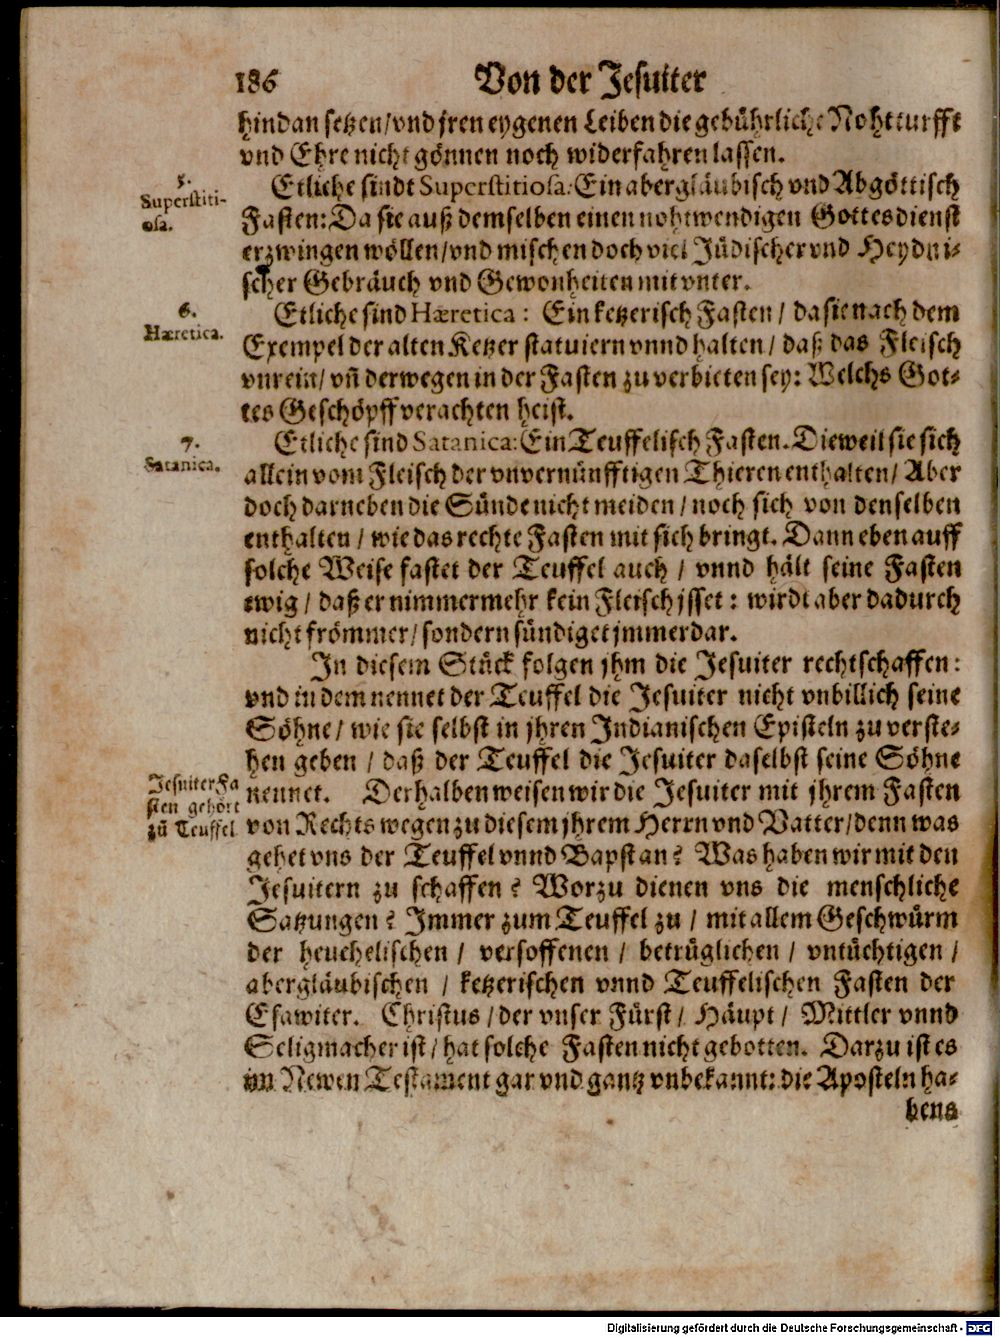 186 Von der Jesuiter
hindan setzen/vnd jren eygenen Leiben die gebührliche Nohtturfft
vnd Ehre nicht gönnen noch widerfahren lassen.
5.
Superstiti-
osa.
Etliche sindt Superstitiosa: Ein abergläubisch vnd Abgöttisch
Fasten: Da sie auß demselben einen nohtwendigen Gottesdienst
erzwingen wöllen/vnd mischen doch viel Jüdischer vnd Heydni-
scher Gebräuch vnd Gewonheiten mit vnter.
6.
Hæretica.
Etliche sind Hæretica: Ein ketzerisch Fasten / da sie nach dem
Exempel der alten Ketzer statuiern vnnd halten / daß das Fleisch
vnrein/ vñ derwegen in der Fasten zu verbieten sey: Welchs Got-
tes Geschöpff verachten heist.
7.
Satanica.
Etliche sind Satanica: Ein Teuffelisch Fasten. Dieweil sie sich
allein vom Fleisch der vnvernünfftigen Thieren enthalten/ Aber
doch darneben die Sünde nicht meiden / noch sich von denselben
enthalten / wie das rechte Fasten mit sich bringt. Dann eben auff
solche Weise fastet der Teuffel auch / vnnd hält seine Fasten
ewig / daß er nimmermehr kein Fleisch jsset: wirdt aber dadurch
nicht frömmer/ sondern sündiget jmmerdar.
In diesem Stück folgen jhm die Jesuiter rechtschaffen:
vnd in dem nennet der Teuffel die Jesuiter nicht vnbillich seine
Söhne / wie sie selbst in jhren Indianischen Episteln zu verste-
hen geben / daß der Teuffel die Jesuiter daselbst seine Söhne
Jesuiter Fa
sten gehört
zũ Teuffel
nennet. Derhalben weisen wir die Jesuiter mit jhrem Fasten
von Rechts wegen zu diesem jhrem Herrn vnd Vatter/denn was
gehet vns der Teuffel vnnd Bapst an? Was haben wir mit den
Jesuitern zu schaffen? Worzu dienen vns die menschliche
Satzungen? Jmmer zum Teuffel zu / mit allem Geschwürm
der heuchelischen / versoffenen / betrüglichen / vntüchtigen /
abergläubischen / ketzerischen vnnd Teuffelischen Fasten der
Esawiter. Christus / der vnser Fürst / Häupt / Mittler vnnd
Seligmacher ist / hat solche Fasten nicht gebotten. Darzu ist es
im Newen Testament gar vnd gantz vnbekannt: die Aposteln ha-
bens
Digitalisierung gefördert durch die Deutsche Forschungsgemeinschaft - DFG